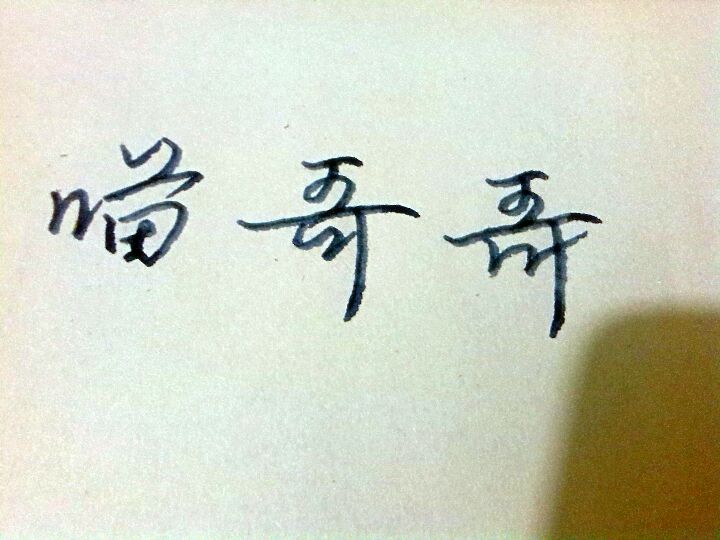 喵哥哥